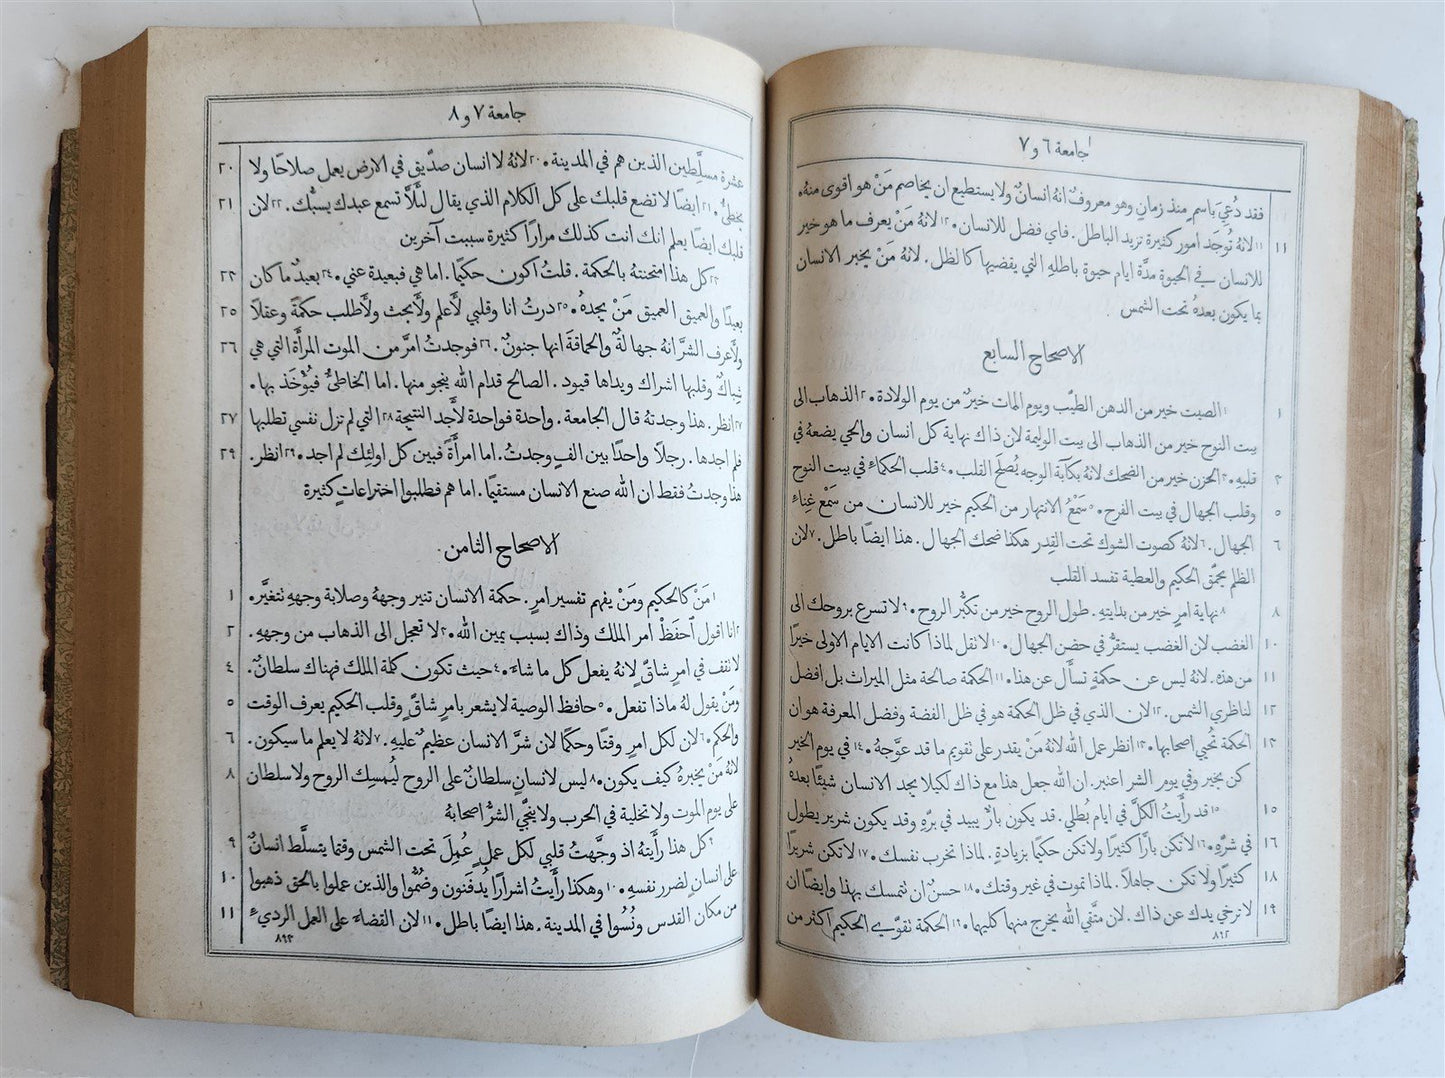 جامعة ٦ و ٧
فقد دُعِيَ باسمٍ منذ زمانٍ وهو معروفٌ انهُ انسانٌ ولا يستطيع ان يخاصم مَنْ هو اقوى منهُ.
١١ ١١لانهُ تُوجَد امور كثيرة تزيد الباطل. فاي فضل للانسان. ١٢لانهُ مَنْ يعرف ما هو خير
للانسان في الحيوة مدَّة ايام حيوة باطلهِ التي يقضيها كالظل. لانهُ مَنْ يخبر الانسان
بما يكون بعدهُ تحت الشمس
الاصحاح السابع
١ ١الصيت خير من الدهن الطيّب ويوم الممات خيرٌ من يوم الولادة. ٢الذهاب الى
بيت النوح خير من الذهاب الى بيت الوليمة لان ذاك نهاية كل انسان والحي يضعهُ في
٣ قلبهِ. ٣الحزن خير من الضحك لانهُ بكآبة الوجه يُصلَح القلب. ٤قلب الحكماءِ في بيت النوح
٥ وقلب الجهال في بيت الفرح. ٥سَمْعُ الانتهار من الحكيم خير للانسان من سَمْع غِناءِ
٦ الجهال. ٦لانهُ كصوت الشوك تحت القِدر هكذا ضحك الجهال. هذا ايضًا باطل. ٧لان
الظلم يحمّق الحكيم والعطية تفسد القلب
٨ ٨نهاية امرٍ خير من بدايتهِ. طول الروح خير من تكبُّر الروح. ٩لا تسرع بروحك الى
١٠ الغضب لان الغضب يستقرُّ في حضن الجهال. ١٠لا تقل لماذا كانت الايام الاولى خيرًا
١١ من هذه. لانهُ ليس عن حكمةٍ تسأَل عن هذا. ١١الحكمة صالحة مثل الميراث بل افضل
١٢ لناظري الشمس. ١٢لان الذي في ظل الحكمة هو في ظل الفضة وفضل المعرفة هو ان
١٣ الحكمة تُحيي اصحابها. ١٣انظر عمل الله لانهُ مَنْ يقدر على تقويم ما قد عوَّجهُ. ١٤في يوم الخير
كن بخير وفي يوم الشر اعتبر. ان الله جعل هذا مع ذاك لكيلا يجد الانسان شيئًا بعدهُ
١٥ ١٥قد رأَيتُ الكلَّ في ايام بُطلي. قد يكون بارٌّ يبيد في برّهِ وقد يكون شرير يطول
١٦ في شرّهِ. ١٦لا تكن بارًّا كثيرًا ولا تكن حكيمًا بزيادةٍ. لماذا تخرب نفسك. ١٧لا تكن شريرًا
١٨ كثيرًا ولا تكن جاهلاً. لماذا تموت في غير وقتك. ١٨حسنٌ ان تتمسك بهذا وايضًا ان
١٩ لا ترخي يدك عن ذاك. لان متَّقي الله يخرج منها كليهما. ١٩الحكمة تقوّي الحكيم اكثر من
٨٩٢
جامعة ٧ و ٨
٢٠ عشرة مسلَّطين الذين هم في المدينة. ٢٠لانهُ لا انسان صدّيق في الارض يعمل صلاحًا ولا
٢١ يخطئُ. ٢١ايضًا لا تضع قلبك على كل الكلام الذي يقال لئلَّا تسمع عبدك يسبُّك. ٢٢لان
قلبك ايضًا يعلم انك انت كذلك مرارًا كثيرة سببت آخرين
٢٣ ٢٣كل هذا امتحنتهُ بالحكمة. قلتُ اكون حكيمًا. اما هي فبعيدة عني. ٢٤بعيدٌ ما كان
٢٥ بعيدًا والعميق العميق مَنْ يجدهُ. ٢٥درتُ انا وقلبي لأَعلم ولأَبحث ولأَطلب حكمةً وعقلاً
٢٦ ولأَعرف الشرَّ انهُ جهالةٌ والحماقةَ انها جنونٌ. ٢٦فوجدتُ امرَّ من الموت المرأَةَ التي هي
شِباكٌ وقلبها اشراك ويداها قيود. الصالح قدام الله ينجو منها. اما الخاطئُ فيُؤْخَذ بها.
٢٧ ٢٧انظر. هذا وجدتهُ قال الجامعة. واحدة فواحدة لأَجد النتيجة ٢٨التي لم تزل نفسي تطلبها
٢٩ فلم اجدها. رجلاً واحدًا بين الفٍ وجدتُ. اما امرأَةً فبين كل اولئك لم اجد. ٢٩انظر.
هذا وجدتُ فقط ان الله صنع الانسان مستقيمًا. اما هم فطلبوا اختراعاتٍ كثيرة
الاصحاح الثامن
١ ١مَنْ كالحكيم ومَنْ يفهم تفسير امرٍ. حكمة الانسان تنير وجههُ وصلابة وجههِ تتغيَّر.
٢ ٢انا اقول ٱحفَظْ امر الملك وذاك بسبب يمين الله. ٣لا تعجل الى الذهاب من وجههِ.
٤ لا تقف في امرٍ شاقٍّ لانهُ يفعل كل ما شاءَ. ٤حيث تكون كلمة الملك فهناك سلطانٌ.
٥ ومَنْ يقول لهُ ماذا تفعل. ٥حافظ الوصية لا يشعر بامرٍ شاقٍّ وقلب الحكيم يعرف الوقت
٦ والحكم. ٦لان لكل امرٍ وقتًا وحكمًا لان شرَّ الانسان عظيمٌ عليهِ. ٧لانهُ لا يعلم ما سيكون.
٨ لانهُ مَنْ يخبرهُ كيف يكون. ٨ليس لانسانٍ سلطانٌ على الروح ليُمسِك الروح ولا سلطان
على يوم الموت ولا تخلية في الحرب ولا ينجّي الشرُّ اصحابهُ
٩ ٩كل هذا رأَيتهُ اذ وجَّهتُ قلبي لكل عملٍ عُمِلَ تحت الشمس وقتما يتسلَّط انسانٌ
١٠ على انسانٍ لضرر نفسهِ. ١٠وهكذا رأَيتُ اشرارًا يُدفَنون وضُمُّوا والذين عملوا بالحق ذهبوا
١١ من مكان القدس ونُسُوا في المدينة. هذا ايضًا باطل. ١١لان القضاءَ على العمل الرديءِ
٨٩٣